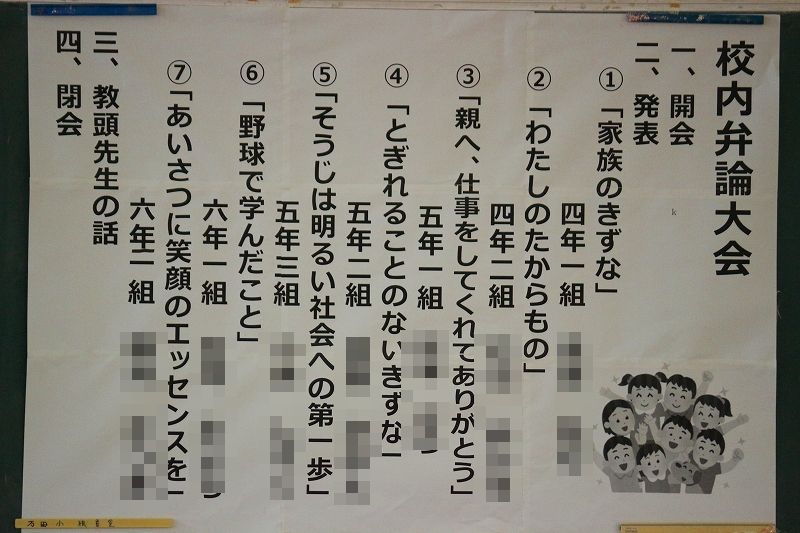 校内弁論大会
一、開会
二、発表
①「家族のきずな」
四年一組
②「わたしのたからもの」
四年二組
③「親へ、仕事をしてくれてありがとう」
五年一組
④「とぎれることのないきずな」
五年二組
⑤「そうじは明るい社会への第一歩」
五年三組
⑥「野球で学んだこと」
六年一組
⑦「あいさつに笑顔のエッセンスを」
六年二組
三、教頭先生の話
四、閉会
k